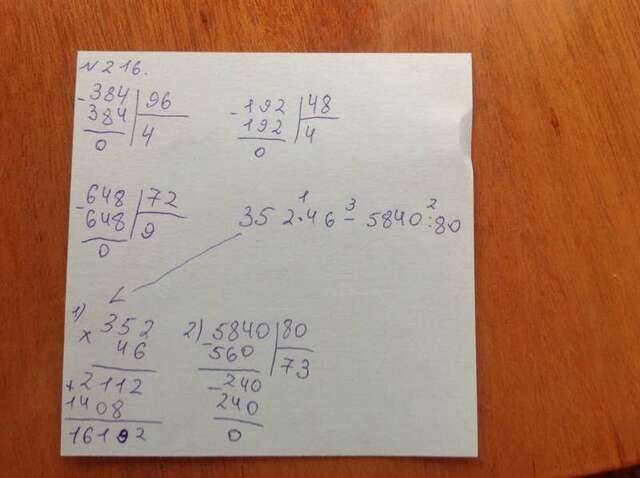 №216.
-384 | 96
384 | 4
0
-192 | 48
192 | 4
0
-648 | 72
648 | 9
0
1 3 2
352·46 - 5840:80
1)
352
x 46
+2112
1408
16192
2) -5840 | 80
560 | 73
-240
240
0